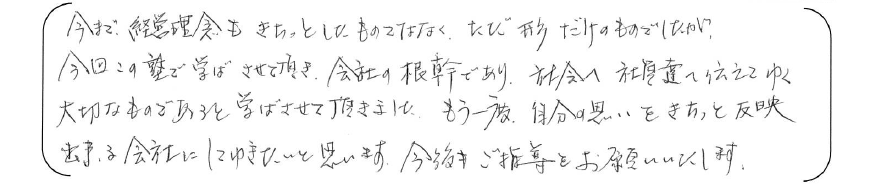 今まで経営理念もきちっとしたものではなく、ただ形だけのものでしたが、
今回この塾で学ばさせて頂き、会社の根幹であり、社会へ社員達へ伝えてゆく
大切なものであると学ばさせて頂きました。もう一度、自分の思いをきちっと反映
出来る会社にしてゆきたいと思います。今後もご指導をお願いいたします。